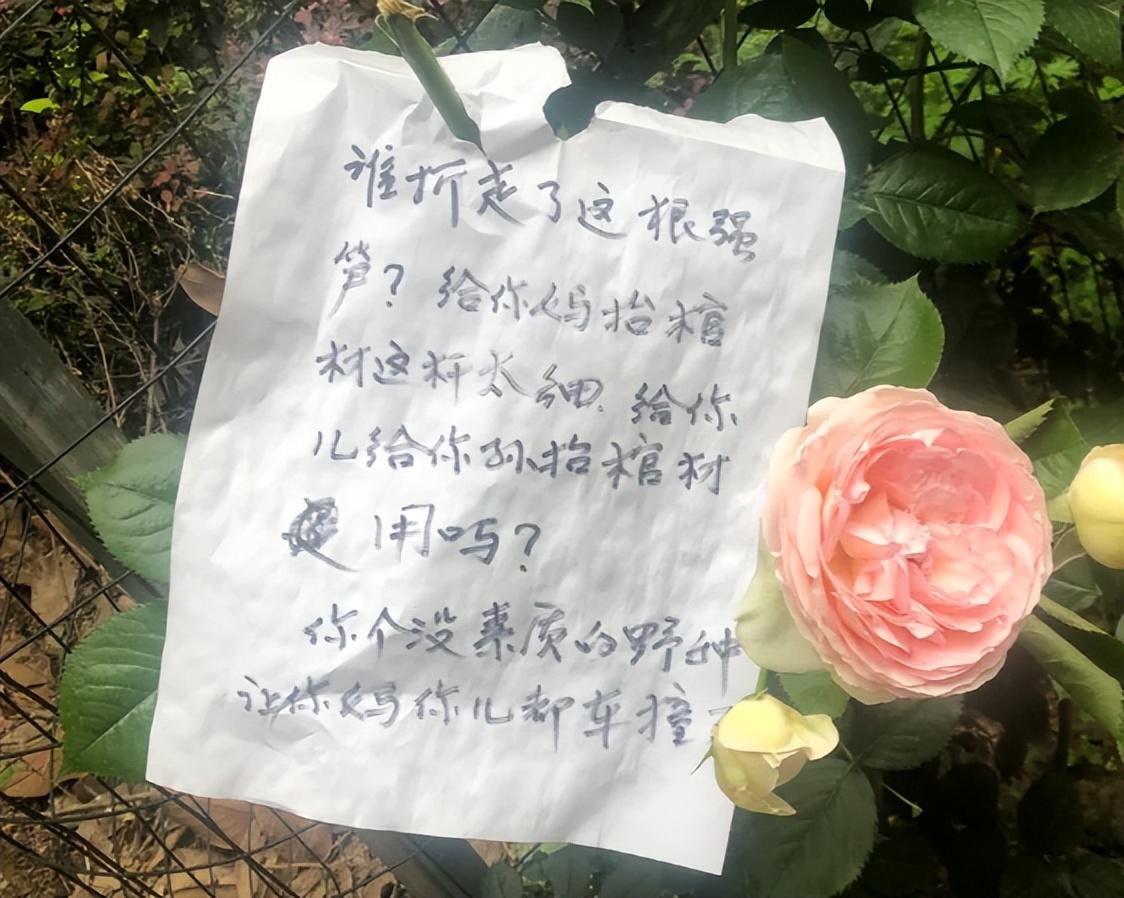 谁折走了这根强
笋？给你妈抬棺
材这杆太细.给你
儿给你孙抬棺材
用吗？
你个没素质的野种
让你妈你儿都车撞